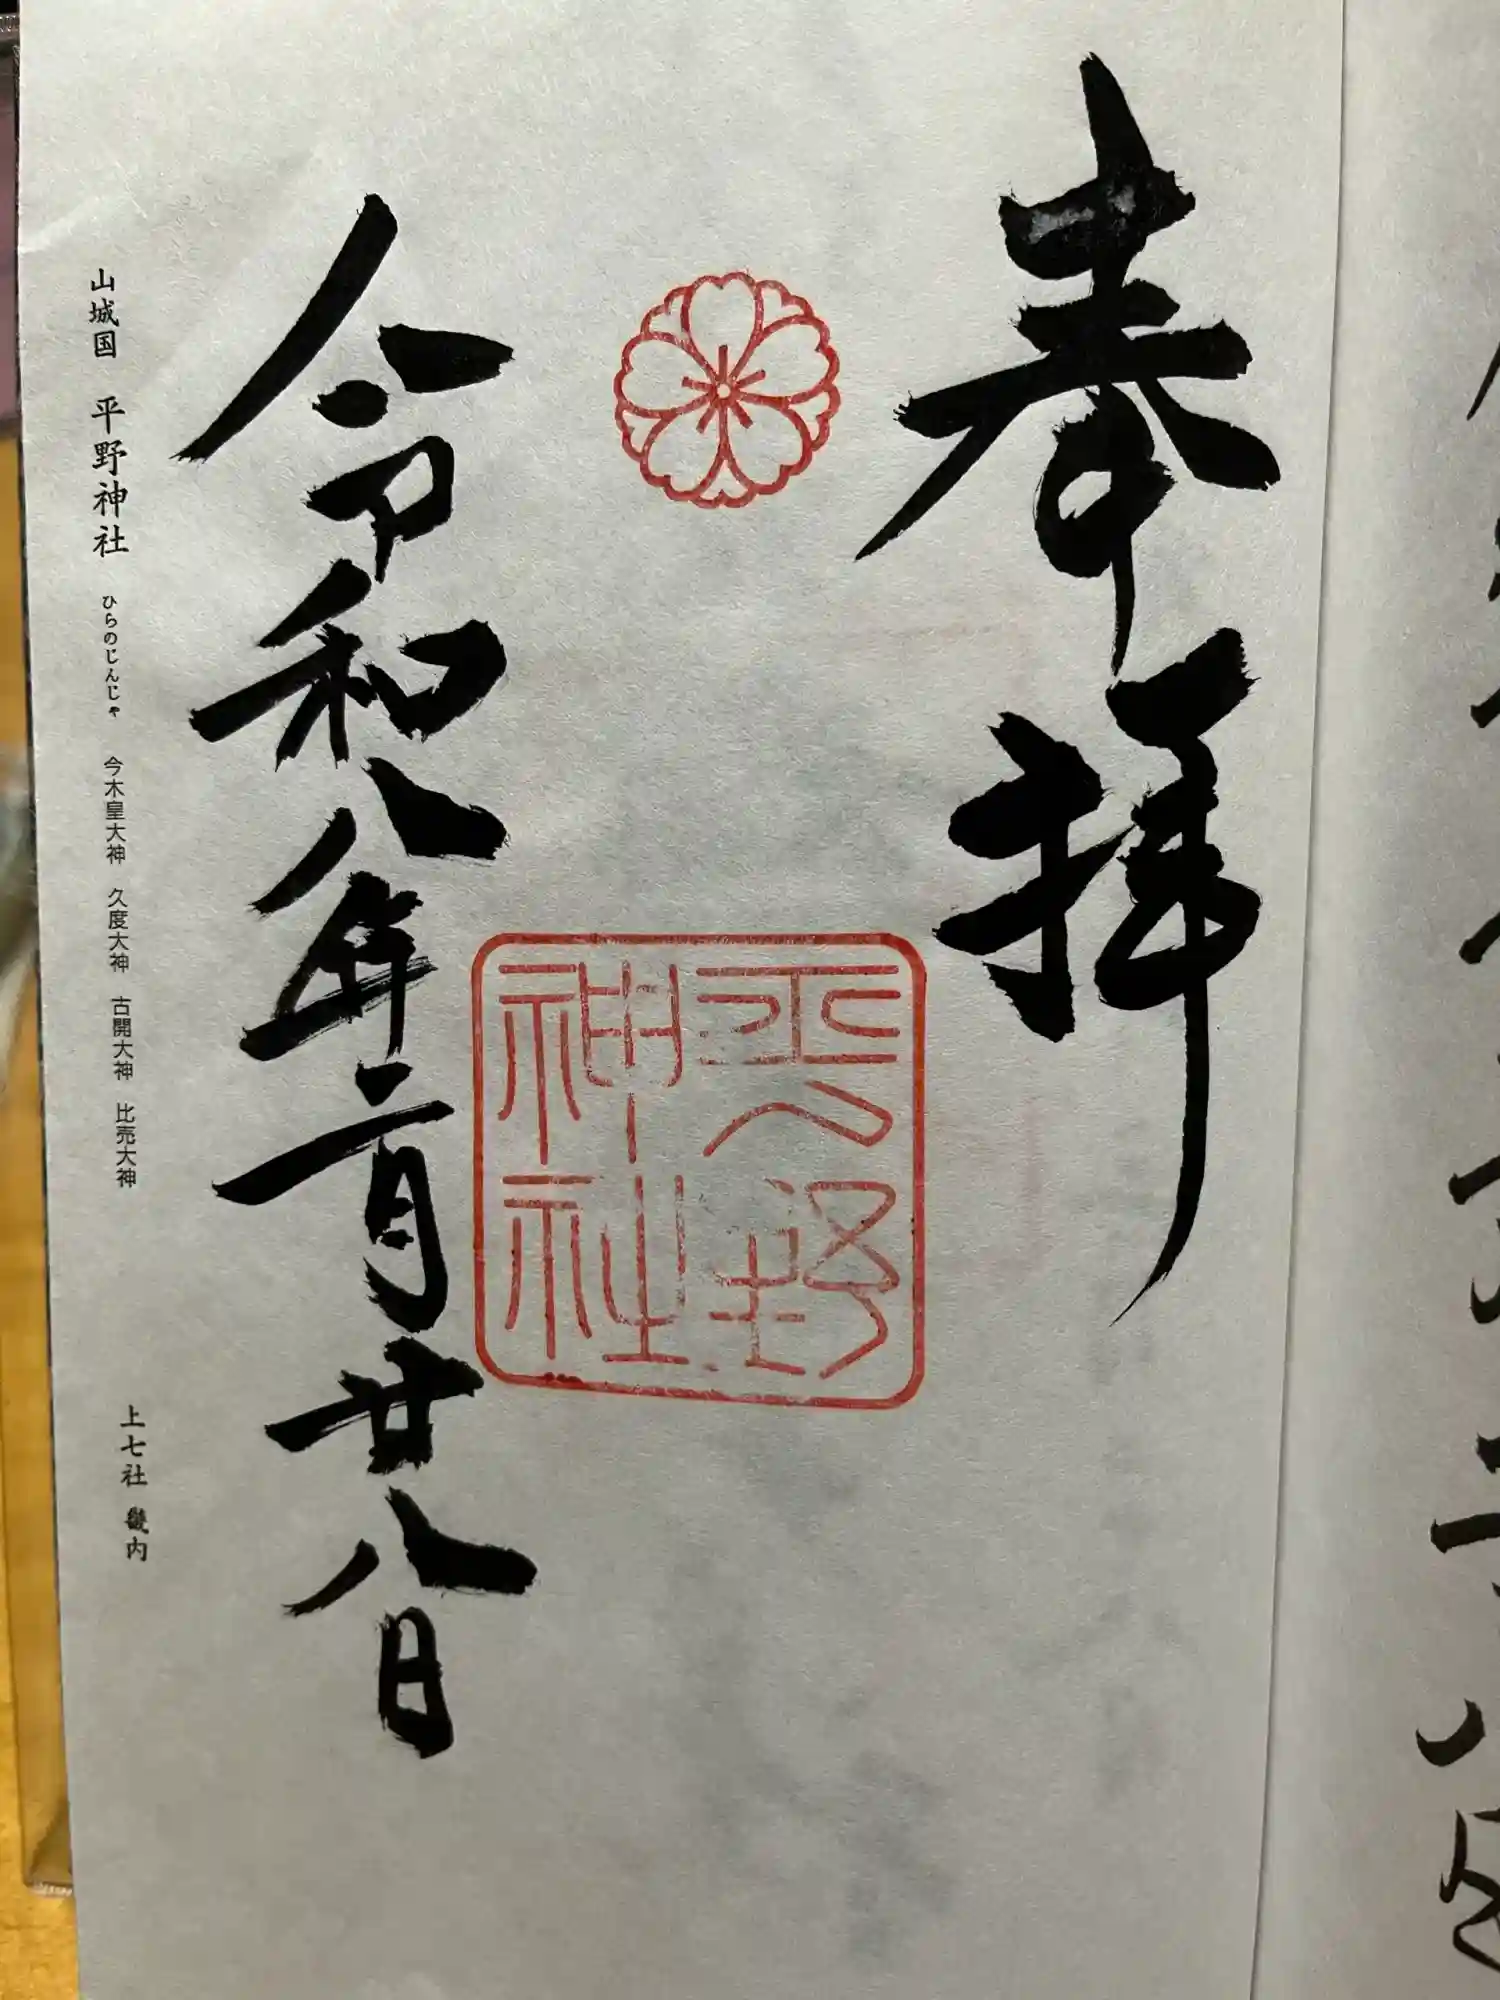 奉拝
平野神社
令和八年二月廿八日
山城国 平野神社 ひらのじんじゃ 今木皇大神 久度大神 古開大神 比売大神
上七社 畿内